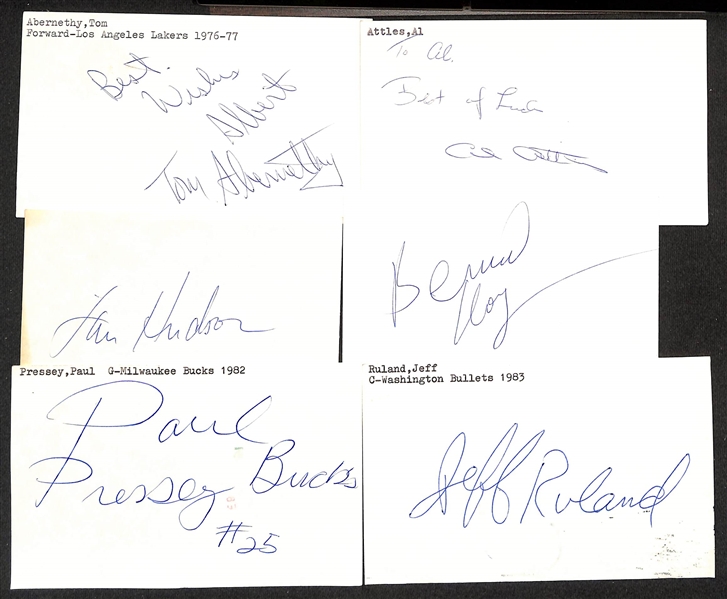 Abernethy,Tom
Forward-Los Angeles Lakers 1976-77
Best
Wishes
Albert
Tom Abernethy
Attles,Al
To Al.
Best of Luck
Al Attles
Lou Hudson
Bernard
King
Pressey,Paul G-Milwaukee Bucks 1982
Paul
Pressey Bucks
#25
Ruland,Jeff
C-Washington Bullets 1983
Jeff Ruland